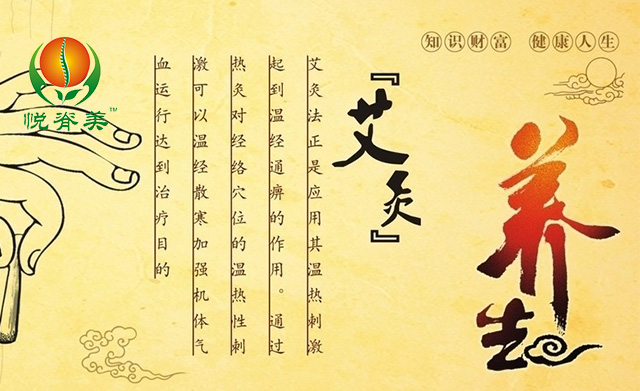 知识财富 健康人生
养生
『艾灸』
艾灸法正是应用其温热刺激
起到温经通痹的作用。通过
热灸对经络穴位的温热性刺
激可以温经散寒加强机体气
血运行达到治疗目的
悦脊美™